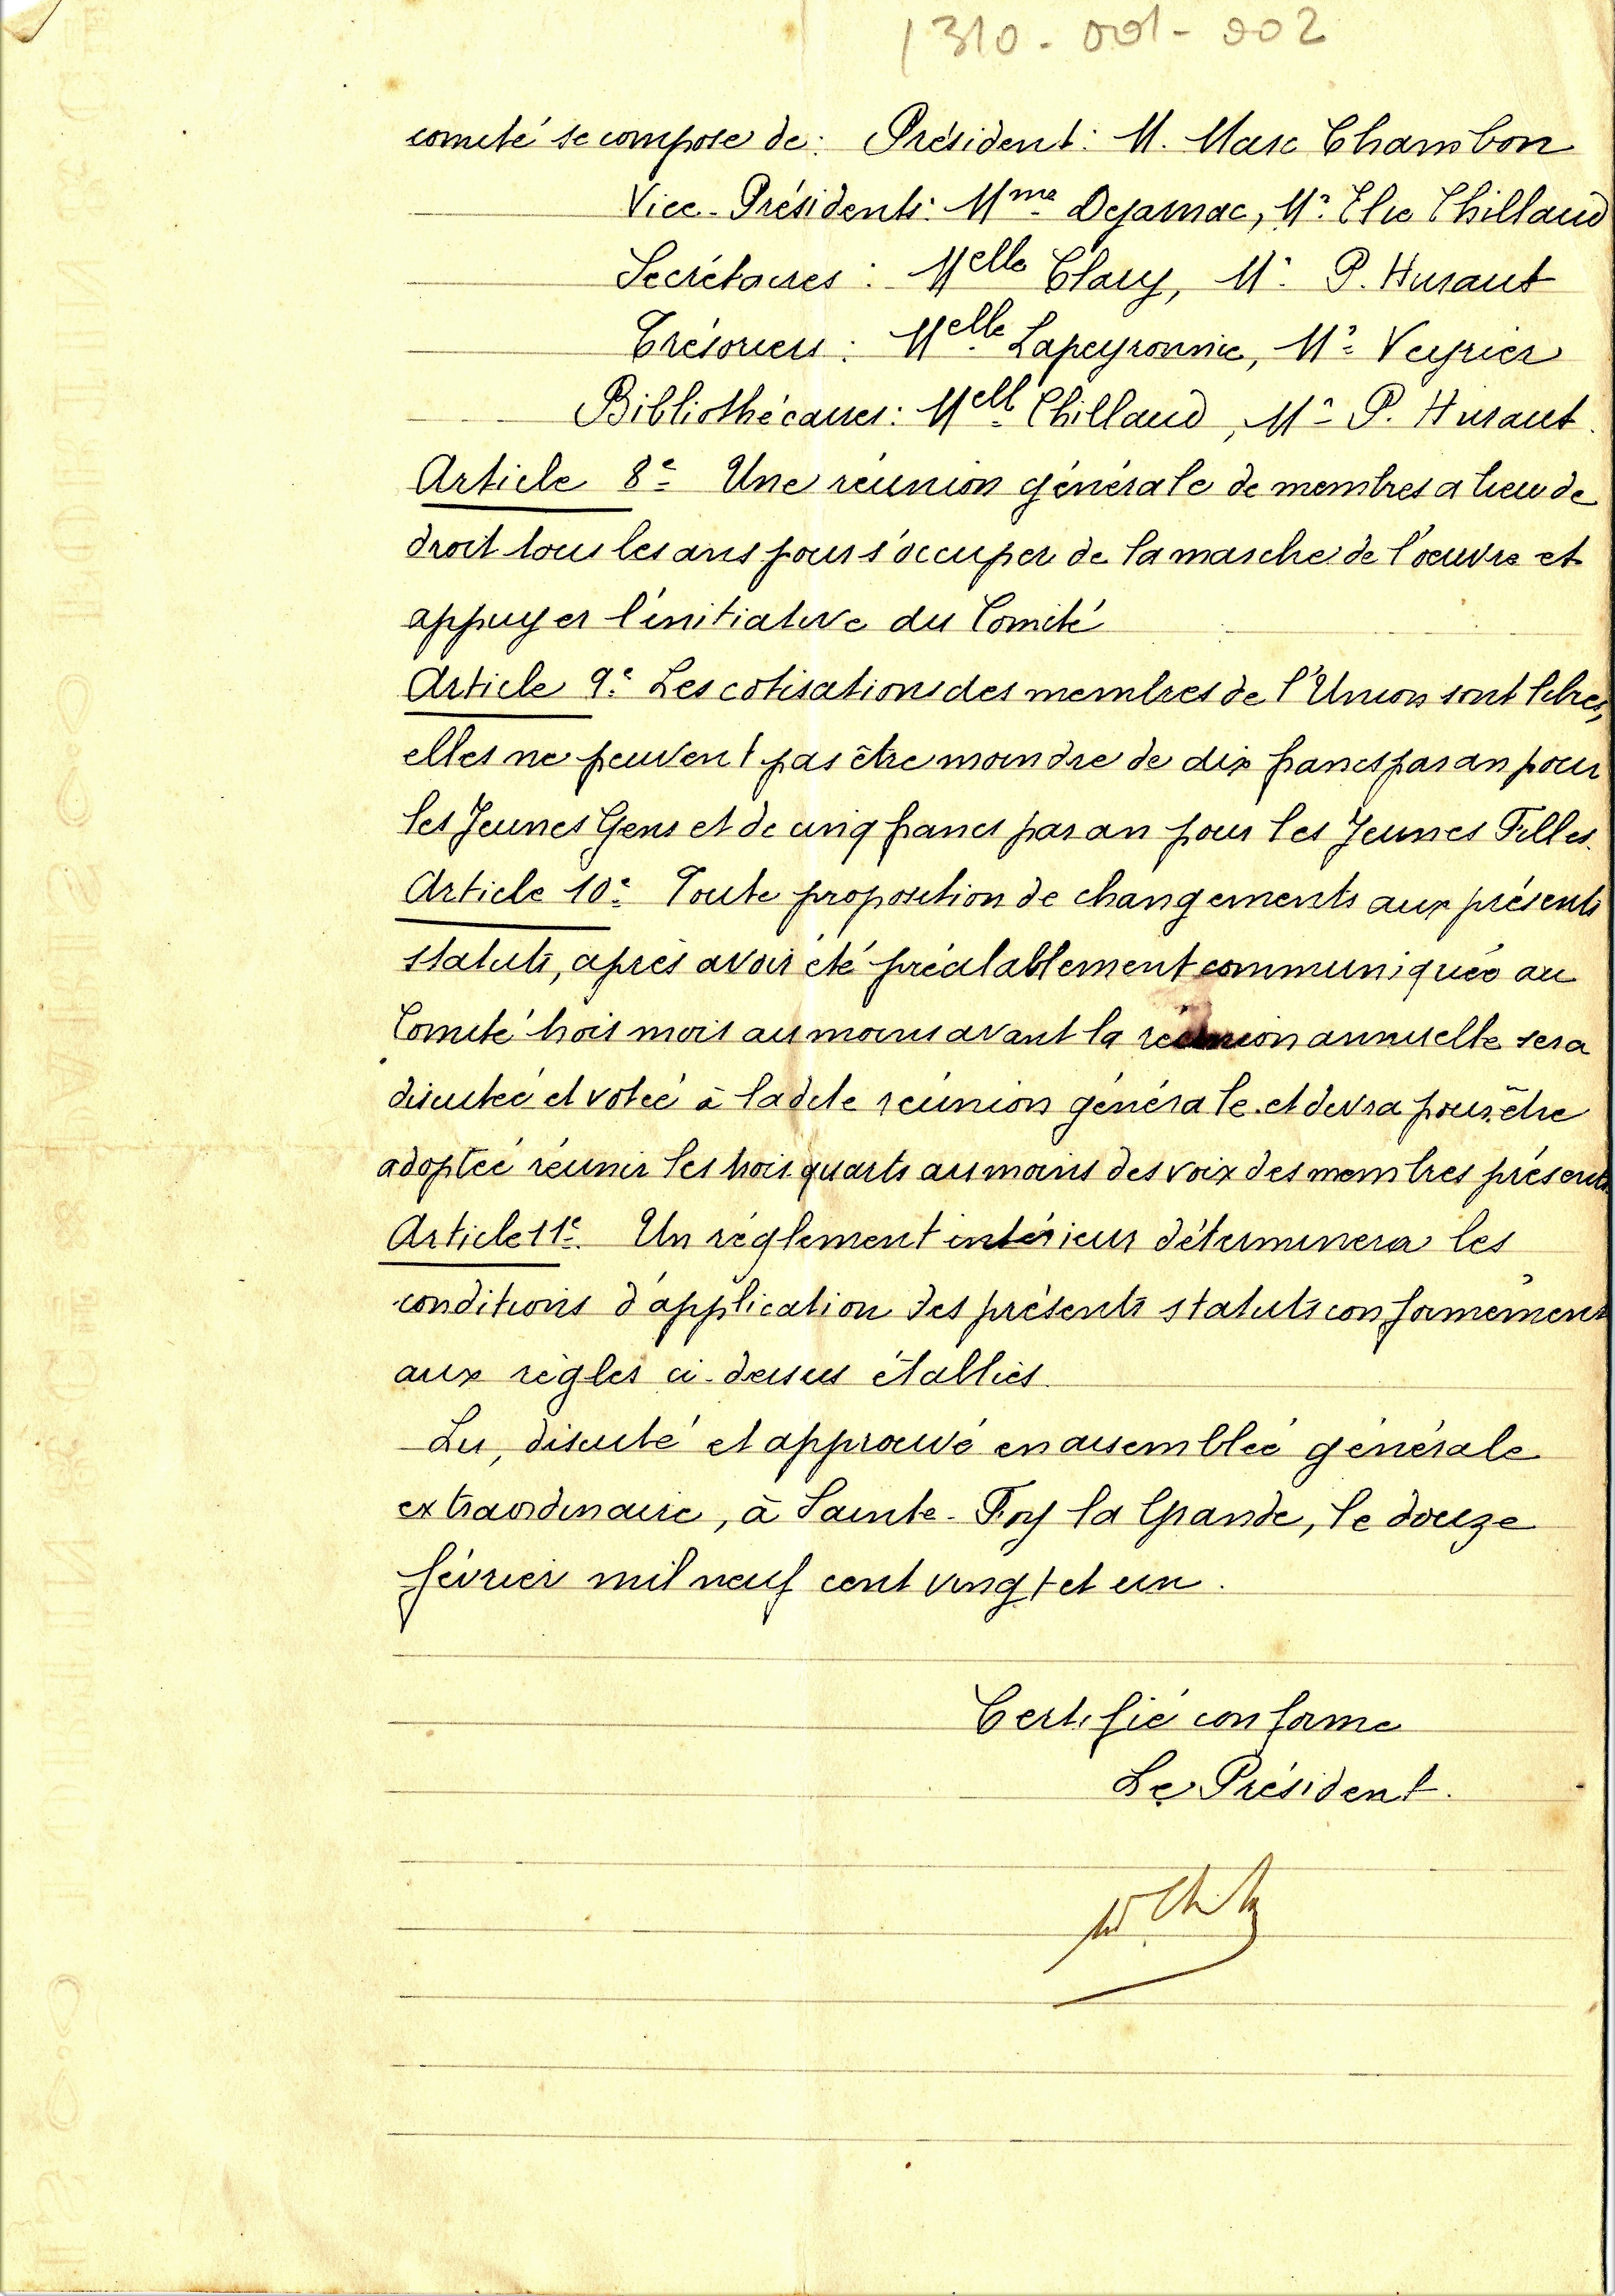 1310-001-002
comité se compose de: Président: M. Marc Chambon
Vice-Présidents: Mme Dejarnac, Mr Elie Chillaud
Secrétaires: Melle Clary, Mr P. Huraut
Trésoriers: Melle Lapeyronnie, Mr Veyrier
Bibliothécaires: Mell Chillaud, Mr P. Huraut.
Article 8e Une réunion générale de membres a lieu de
droit tous les ans pour s'occuper de la marche de l'oeuvre et
appuyer l'initiative du Comité
Article 9e Les cotisations des membres de l'Union sont libres,
elles ne peuvent pas être moindre de dix francs par an pour
les Jeunes Gens et de cinq francs par an pour les Jeunes Filles.
Article 10e Toute proposition de changements aux présents
statuts, après avoir été préalablement communiquée au
Comité trois mois au moins avant la réunion annuelle sera
discutée et votée à ladite réunion générale et devra pour être
adoptée réunir les trois quarts au moins des voix des membres présents
Article 11e. Un règlement intérieur déterminera les
conditions d'application des présents statuts conformément
aux règles ci-dessus établies.
Lu, discuté et approuvé en assemblée générale
extraordinaire, à Sainte-Foy la Grande, le douze
février mil neuf cent vingt et un.
Certifié conforme
Le Président.